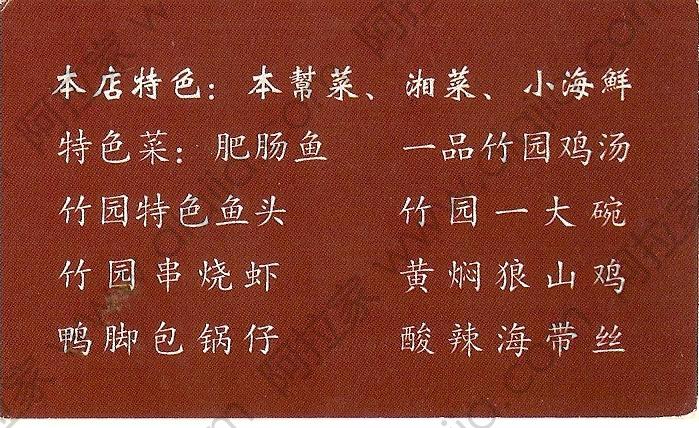 本店特色：本幫菜、湘菜、小海鮮
特色菜：肥肠鱼 一品竹园鸡汤
竹园特色鱼头 竹园一大碗
竹园串烧虾 黄焖狼山鸡
鸭脚包锅仔 酸辣海带丝